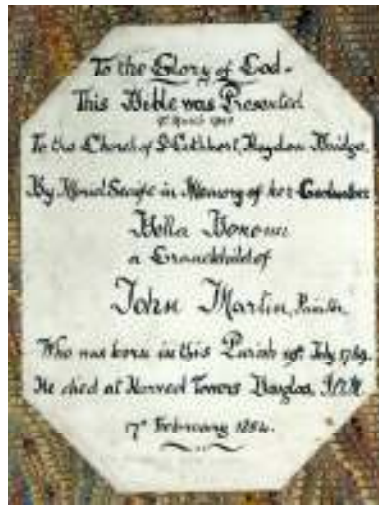 To the Glory of God.
This Bible was Presented
To the Church of St Cuthbert, Haydon Bridge,
By Maud Scafe in Memory of her
Bella Bonomi
a Grandchild of
John Martin, Painter,
Who was born in this Parish 19th July 1789.
He died at Towers Douglas, I.O.M.
17th February 1854.